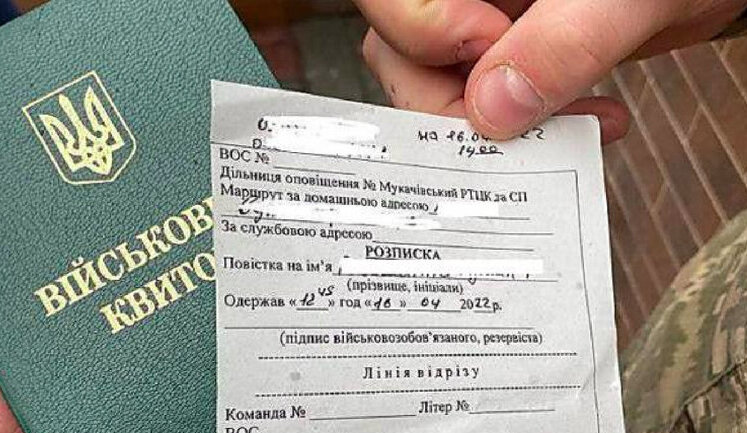 ВІЙСЬКОВ
КВИТО
на 16.04 22
14 00
ВОС №
Дільниця оповіщення № Мукачівський РТЦК да СП
Маршрут за домашньою адресою
За службовою адресою
РОЗПИСКА
Повістка на ім'я
(прізвище, ініціали)
Одержав «12 45» год «16» 04 2022р.
(підпис військовозобов'язаного, резервіста)
Лінія відрізу
Команда № Літер №
ВОС